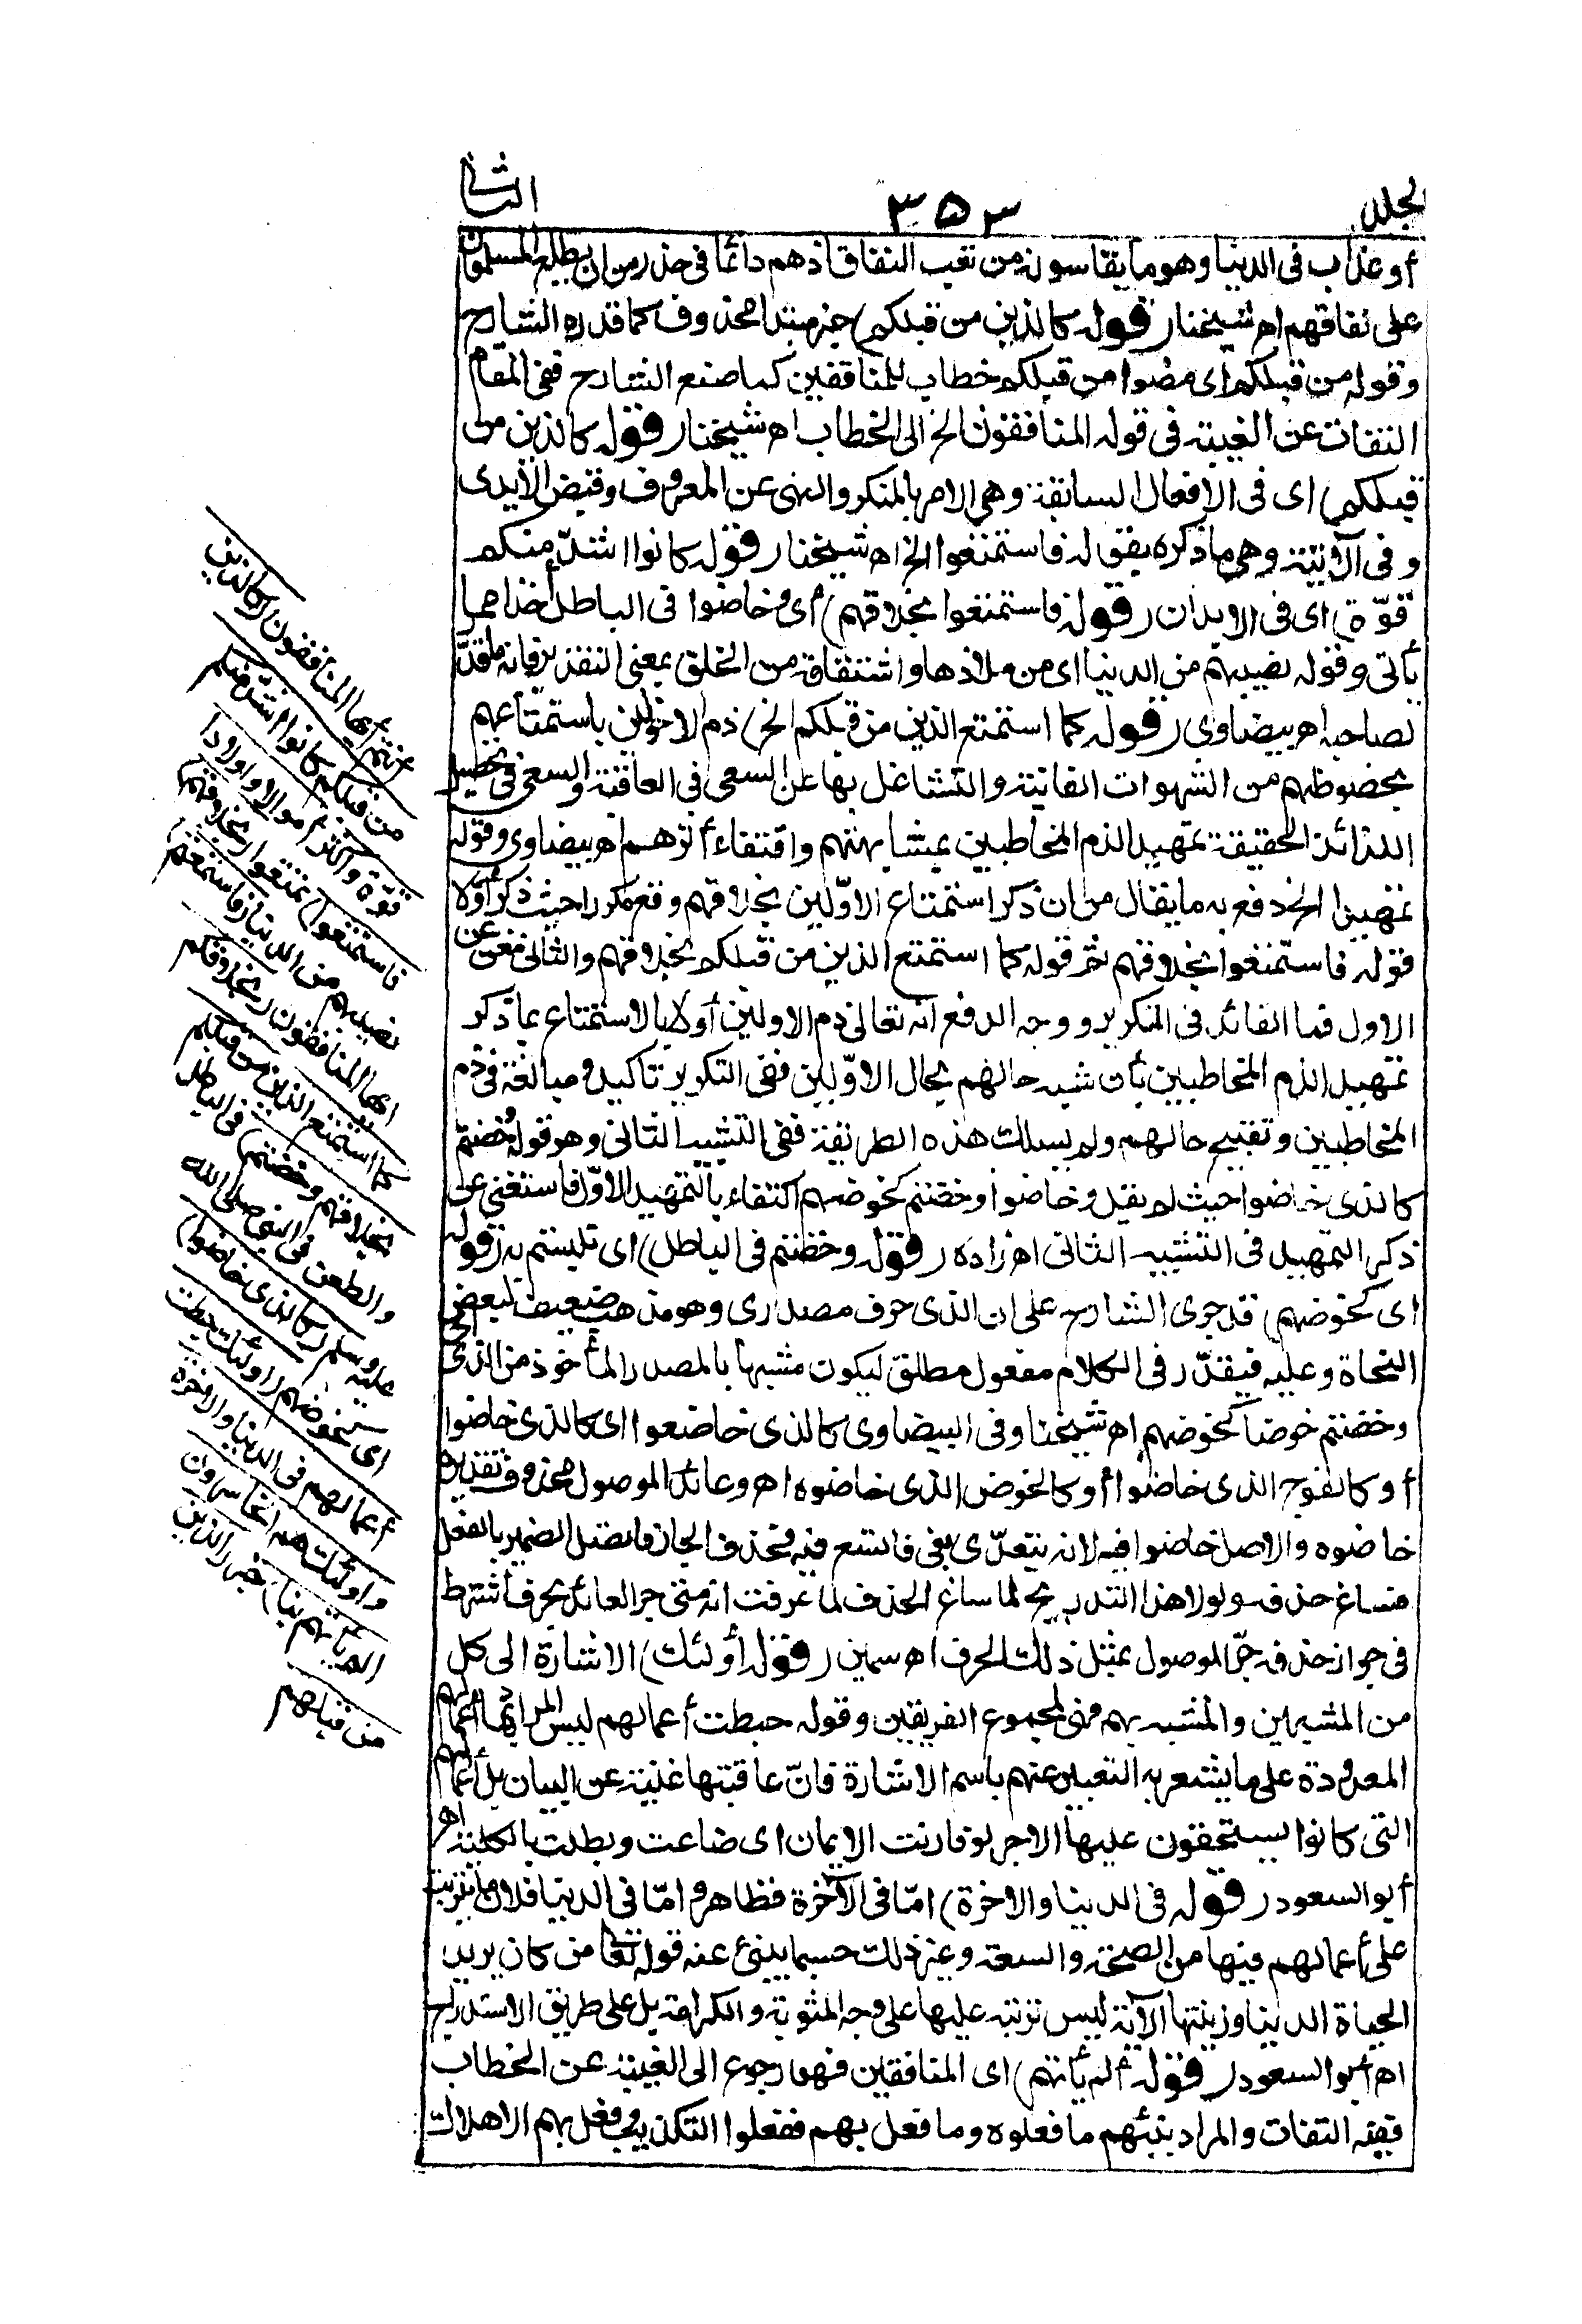 الجلد
٣٥٣
الثانى
أو عذاب فى الدنيا وهو ما يقاسونه من تعب النفاق اذهم دائما فى حذر من ان يطلع المسلمون
على نفاقهم اهـ شيخنا (قوله كالذين من قبلكم) خبر مبتدا محذوف كما قدره الشارح
وقوله من قبلكم أى مضوا من قبلكم خطاب للمنافقين كما صنع الشارح ففى المقام
التفات عن الغيبة فى قوله المنافقون الخ الى الخطاب اهـ شيخنا (قوله كالذين من
قبلكم) اى فى الافعال السابقة وهى الامر بالمنكر والنهى عن المعروف وقبض الايدى
وفى الآتية وهى ما ذكره بقوله فاستمتعوا الخ اهـ شيخنا (قوله كانوا اشدّ منكم
قوّة) اى فى الابدان (قوله فاستمتعوا بخلاقهم) أى وخاضوا فى الباطل أخذا مما
يأتى وقوله نصيبهم من الدنيا اى من ملاذها واشتقاقه من الخلق بمعنى التقدير فانه ما قدّر
لصاحبه اهـ بيضاوى (قوله كما استمتع الذين من قبلكم الخ) ذم الاولين باستمتاعهم
بحضوظهم من الشهوات الفانية والتشاغل بها عن السعى فى العاقبة والسعى فى تحصيل
اللذائذ الحقيقة تمهيدا لذم المخاطبين بمشابهتهم واقتفاء أثرهم اهـ بيضاوى وقوله
تمهيدا الخ دفع به ما يقال من ان ذكر استمتاع الاوّلين بخلاقهم وقع مكررا حيث ذكر أوّلا
قوله فاستمتعوا بخلاقهم ثم قوله كما استمتع الذين من قبلكم بخلاقهم والثانى مغن عن
الاول فما الفائدة فى التكرير ووجه الدفع انه تعالى ذم الاولين أولا بالاستمتاع بما ذكر
تمهيدا لذم المخاطبين بأن شبه حالهم بحال الاوّلين ففى التكرير تأكيد ومبالغة فى ذم
المخاطبين وتقبيح حالهم ولم يسلك هذه الطريقة ففى التشبيه الثانى وهو قوله وخضتم
كالذى خاضوا حيث لم يقل وخاضوا وخضتم كخوضهم اكتفاء بالتمهيد الاوّل فاستغنى عن
ذكر التمهيد فى التشبيه الثانى اهـ زاده (قوله وخضتم فى الباطل) اى تلبستم به (قوله
اى كخوضهم) قد جرى الشارح على ان الذى حرف مصدرى وهو مذهب ضعيف لبعض
النحاة وعليه فيقدّر فى الكلام مفعول مطلق ليكون مشبها بالمصدر المأخوذ من الذى أى
وخضتم خوضا كخوضهم اهـ شيخنا وفى البيضاوى كالذى خاضعوا اى كالذى خاضوا
أو كالفوج الذى خاضوا أو كالخوض الذى خاضوه اهـ وعائد الموصول محذوف تقديره
خاضوه والاصل خاضوا فيه لانه يتعدّى بفى فاتسع فيه فحذف الجار فاتصل الضمير بالفعل
فساغ حذفه ولولا هذا التدريج لما ساغ الحذف لما عرفت انه متى جر العائد بحرف اشترط
فى جواز حذفه جرّ الموصول بمثل ذلك الحرف اهـ سمين (قوله أولئك) الاشارة الى كل
من المشبهين والمشبه بهم فهى لمجموع الفريقين وقوله حبطت أعمالهم ليس المراد بها أعمالهم
المعدودة على ما يشعر به التعبير عنهم باسم الاشارة فانّ عاقبتها غنية عن البيان بل أعمالهم
التى كانوا يستحقون عليها الاجر لو قارنت الايمان اى ضاعت وبطلت بالكلية اهـ
أبو السعود (قوله فى الدنيا والاخرة) امّا فى الآخرة فظاهر وامّا فى الدنيا فلان ما يترتب
على أعمالهم فيها من الصحة والسعة وغير ذلك حسبما ينبئ عنه قوله تعالى من كان يريد
الحياة الدنيا وزينتها الآية ليس ترتبه عليها على وجه المثوبة والكرامة بل على طريق الاستدراج
اهـ أبو السعود (قوله ألم يأتهم) اى المنافقين فهو رجوع الى الغيبة عن الخطاب
ففيه التفات والمراد بنبئهم ما فعلوه وما فعل بهم ففعلوا التكذيب وفعل بهم الاهلاك
أنتم أيها المنافقون (كالذين
من قبلكم كانوا اشدّ منكم
قوّة واكثر أموالا واولادا
فاستمتعوا) تمتعوا (بخلاقهم
نصيبهم من الدنيا (فاستمتعتم)
ايها المنافقون (بخلاقكم
كما استمتع الذين من قبلكم
بخلاقهم وخضتم) فى الباطل
والطعن فى النبى صلى الله
عليه وسلم (كالذى خاضوا)
اى كخوضهم (اولئك حبطت
أعمالهم فى الدنيا والاخرة
واولئك هم الخاسرون
الم يأتهم نبا) خبر (الذين
من قبلهم